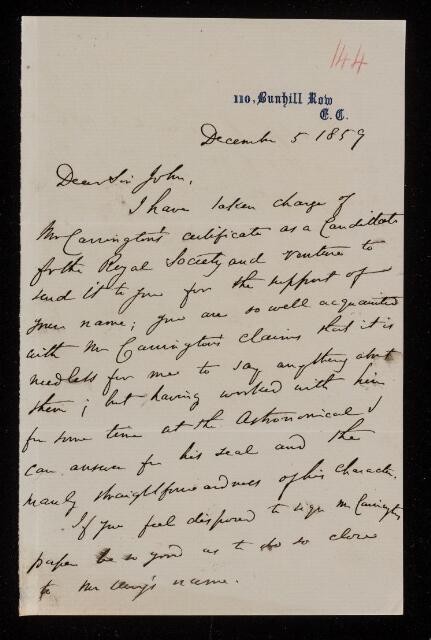 144
110, Bunhill Row
E.C.
December 5 1859
Dear Sir John,
I have taken charge of
Mr Carrington's certificate as a Candidate
for the Royal Society and venture to
send it to you for the support of
your name; you are so well acquainted
with Mr Carrington's claims that it is
needless for me to say anything about
them; but having worked with him
for some time at the Astronomical I
can answer for his zeal and the
manly straightforwardness of his character.
If you feel disposed to sign Mr Carrington's
paper be so good as to do so close
to Mr name.